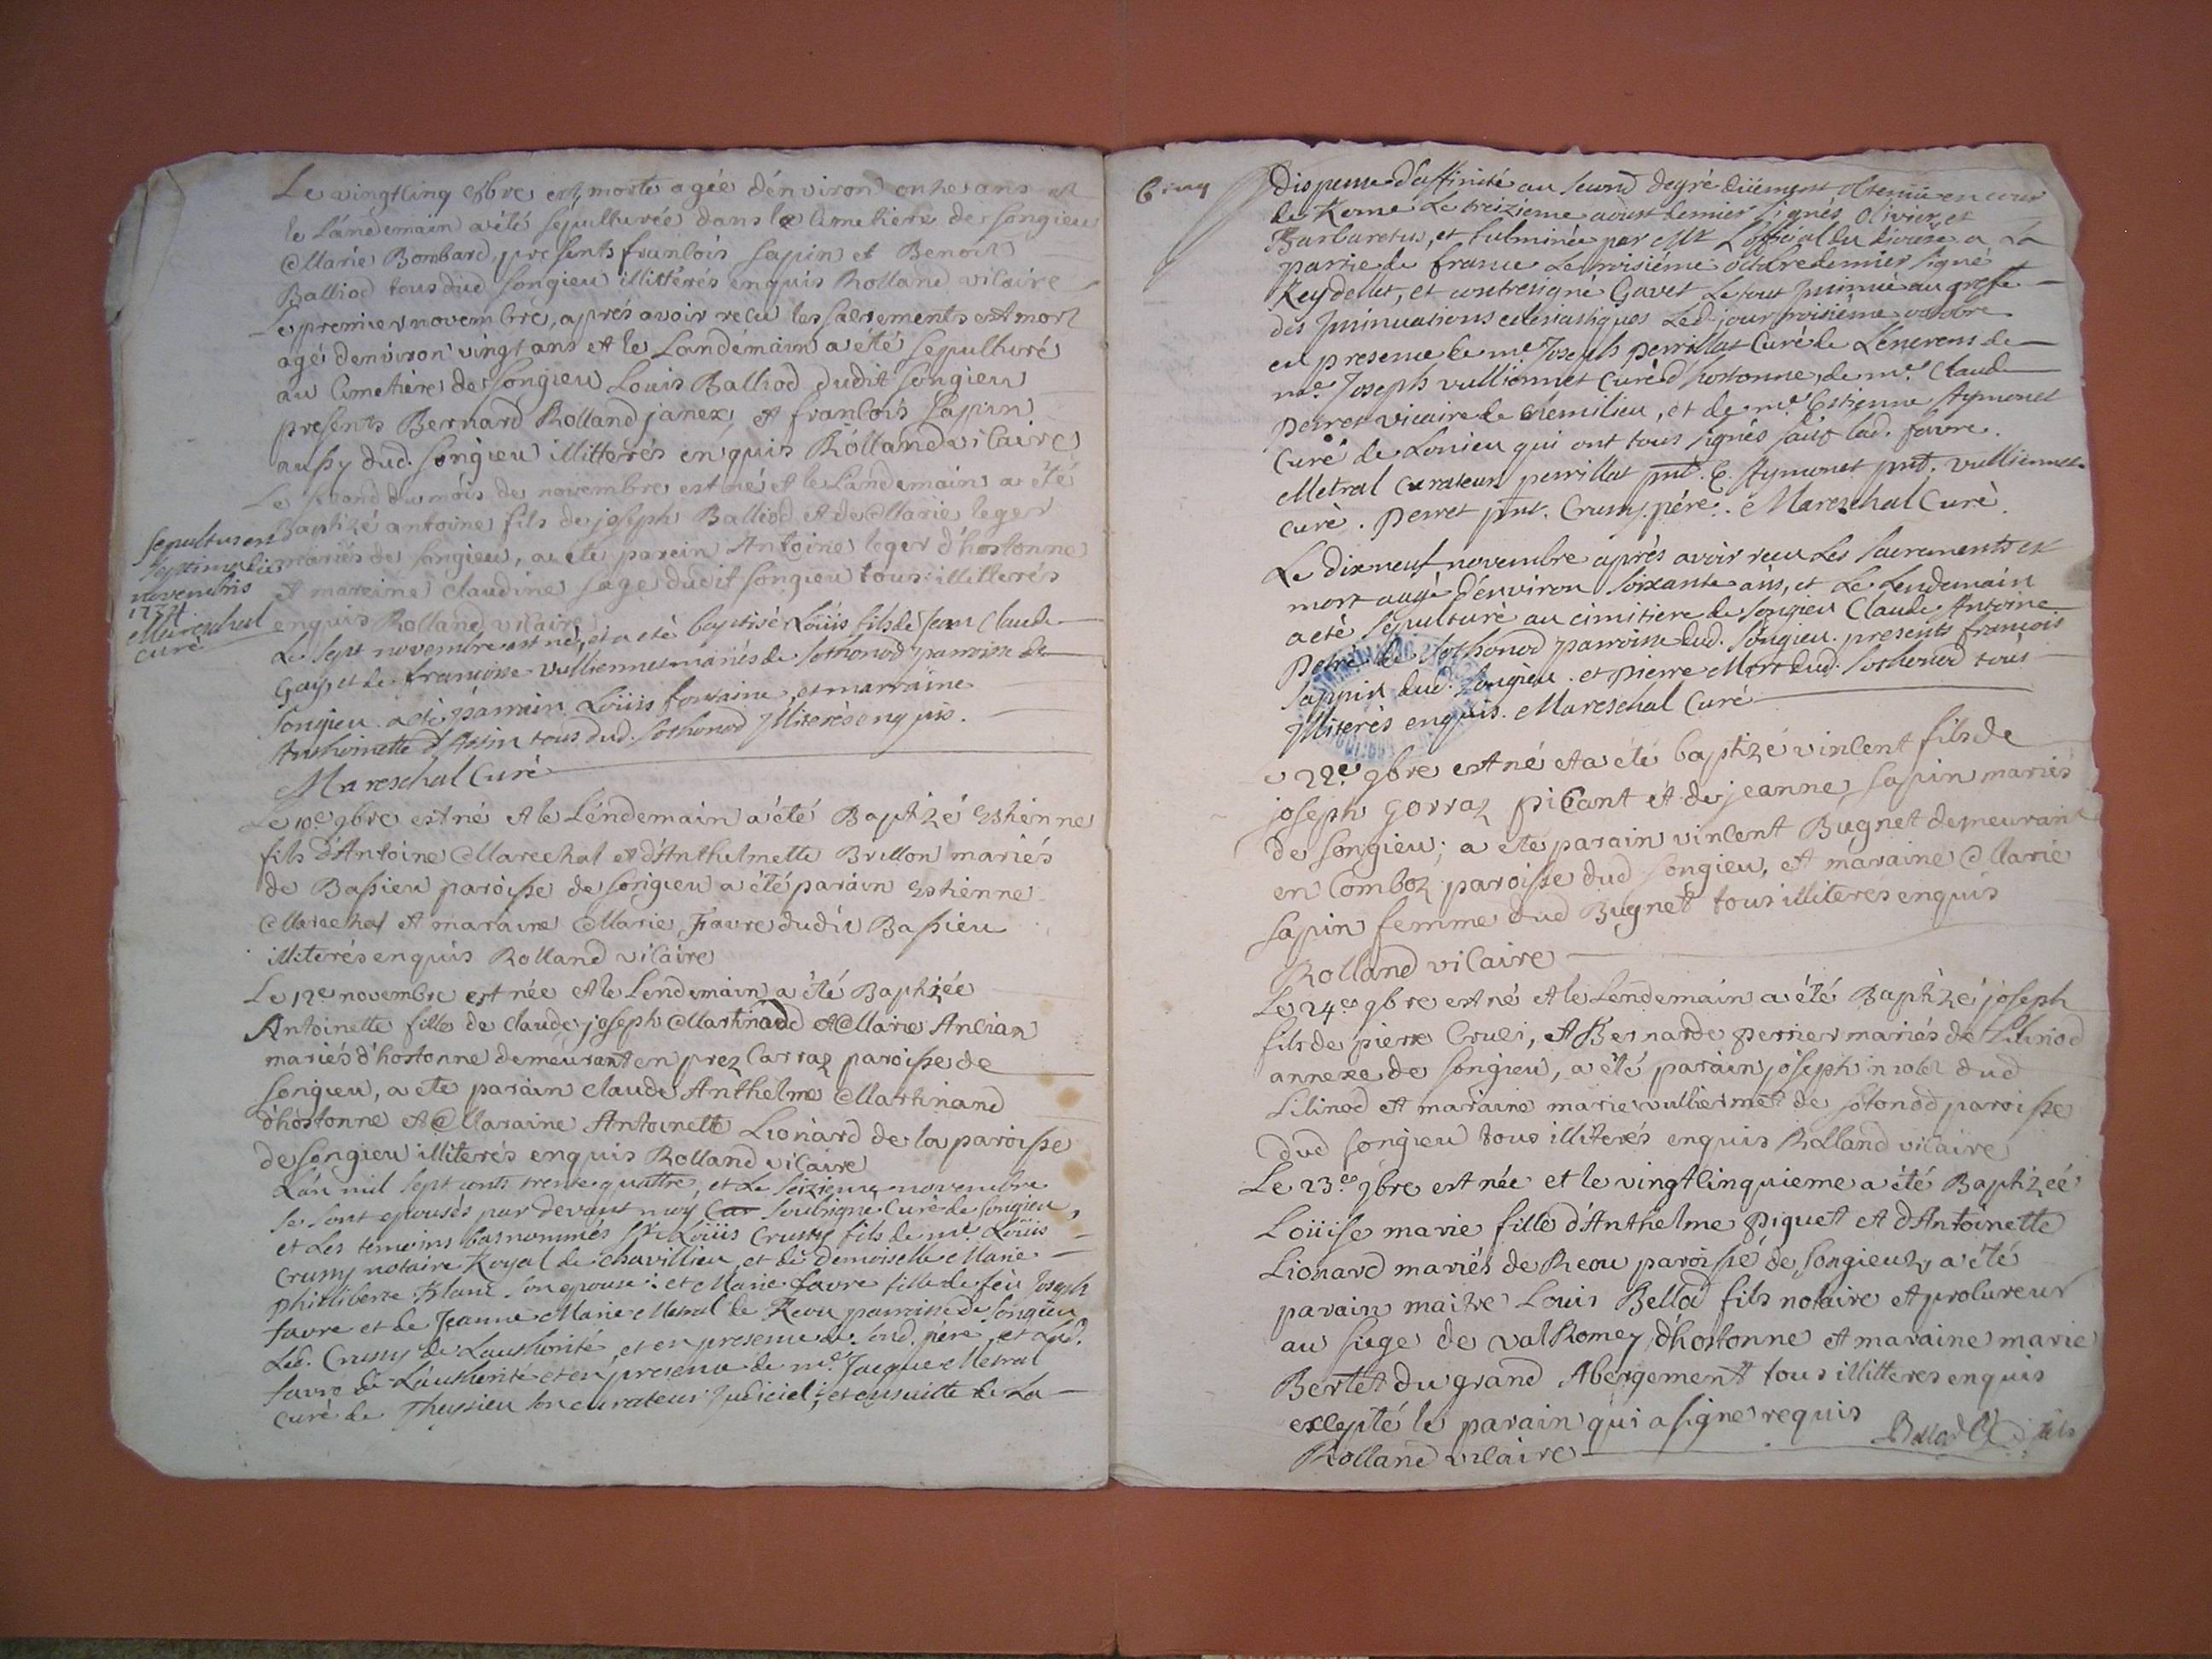 Le vingtcinq 8bre est morte agée d'environ onze ans et
le Landemain a été sépulturée dans le Cimetiere de Songieu
Marie Bombard, presents francois Sapin et Benoit
Balliod tous dud Songieu illittérés enquis Rolland vicaire
Le premier novembre, aprés avoir recu les sacrements est mort
agé denviron vingt ans et le Landemain a été sepulturé
au Cimetiére de Songieu Louis Balliod dudit Songieu
presents Bernard Rolland janex, et francois Sapin
aussy dud. Songieu illitterés enquis Rolland vicaire
Le second du mois de novembre est né et le Landemain a été
Baptizé antoine fils de joseph Balliod et de Marie leger
mariés de Songieu, a eté parein Antoine leger d'hostonne
et mareine Claudine Sage dudit Songieu tous illitterés
enquis Rolland vicaire
Sepultus en
septima die
novembris
1734
Mareschal
curé
Le sept novembre est né, et a eté baptisé Loüis fils de Jean Claude
Gay, et de françoise Vulliermet mariés de Sothonod parroisse de
Songieu. a eté parrain Loüis fontaine, et marraine
Anthoinette d'Astin tous dud. Sothonod Illiterés enquis.
Mareschal Curé
Le 10e 9bre est né et le Lendemain a été Baptizé Esthienne
fils d'Antoine Marechal et d'Anthelmette Brillon mariés
de Bassieu paroisse de Songieu a été parain Esthienne
Marechal et maraine Marie Favre dudit Bassieu
illiterés enquis Rolland vicaire
Le 12e novembre est née et le Lendemain a été Baptizée
Antoinette fille de claude joseph Martinand et Marie Ancian
mariés d'hostonne demeurant en prez Carraz paroisse de
Songieu, a eté parain claude Anthelme Martinand
d'hostonne et Maraine Antoinette Lionard de la paroisse
de Songieu illiterés enquis Rolland vicaire
L'an mil sept cents trente quattre, et Le seizieme novembre
se sont epousés par devant moy Cur soubsigné Curé de Songieu,
et Les temoins bas nommés Sr. Loüis Crussy fils de me. Loüis
Crussy notaire Royal de Chavillieu, et de Demoiselle Marie
Philliberte Blanc son epouse: et Marie favre fille de feu Joseph
favre et de Jeanne Marie Metral de Reou parroisse de Songieu
Led. Crussy de L'authorité, et en presence de sond. pere, et Lad.
favre de L'authorité et en presence de me. Jacque Metral
curé de Thezieu son curateur Judiciel; et ensuitte de La
6
Dispense d'affinité au second degré düement obtenüe en cour
de Rome Le treizieme aoust dernier signés Olivier, et
Barbaretus, et fulminée par Mr L'official du diocése a La
partie de france Le troisiéme octobre dernier signé
Reydellet, et contresigné Gavet Le tout Insinué au greffe
des Insinuations eclesiastiques Led. jour troisiéme octobre
en presence de me Joseph Perrillat Curé de Lénerens de
me. Joseph vulliermet curé d'hostonne, de me. Claude
Perret vicaire de Chemilieu, et de me. Estienne Aymonet
Curé de Lonieu qui ont tous signés sauf lad. favre.
Metral Curateur perrillat pnt. E. Aymonet pnt. vulliermet
curé. Perret pnt. Crussy. pére. Mareschal Curé.
Le dix neuf novembre aprés avoir receu Les sacrements est
mort aagé d'environ soixante ans, et Le Lendemain
a eté sepulturé au cimitiere de Songieu Claude Antoine
Petré de Sothonod parroisse dud. Songieu. presents françois
Sappin dud. Songieu. et Pierre Mort dud. Sothonod tous
Illiterés enquis. Mareschal Curé
e 22e 9bre est né et a été baptizé vincent fils de
joseph Gorraz picant et de jeanne Sapin mariés
de Songieu; a eté parain vincent Bugnet demeurant
en Comboz paroisse dud Songieu, et maraine Marie
Sapin femme dud Bugnet tous illiterés enquis
Rolland vicaire
Le 24e 9bre est né et le Lendemain a été Baptizé joseph
fils de pierre Cruci, et Bernarde perrier mariés de Lilinod
annexe de Songieu, a été parain joseph dud
Lilinod et maraine marie vulliermet de Sotonod paroisse
dud Songieu tous illiterés enquis Rolland vicaire
Le 23e 9bre est née et le vingtcinquieme a été Baptizéé
Loüise marie fille d'Anthelme Piguet et d'Antoinette
Lionard mariés de Reou paroisse de Songieu, a été
parain maitre Louis Bellod fils notaire et procureur
au siege de valRomey d'hostonne et maraine marie
Bertet du grand Abergement tous illitteres enquis
excepté le parain qui a signe requis
Rolland vicaire Bellod fils